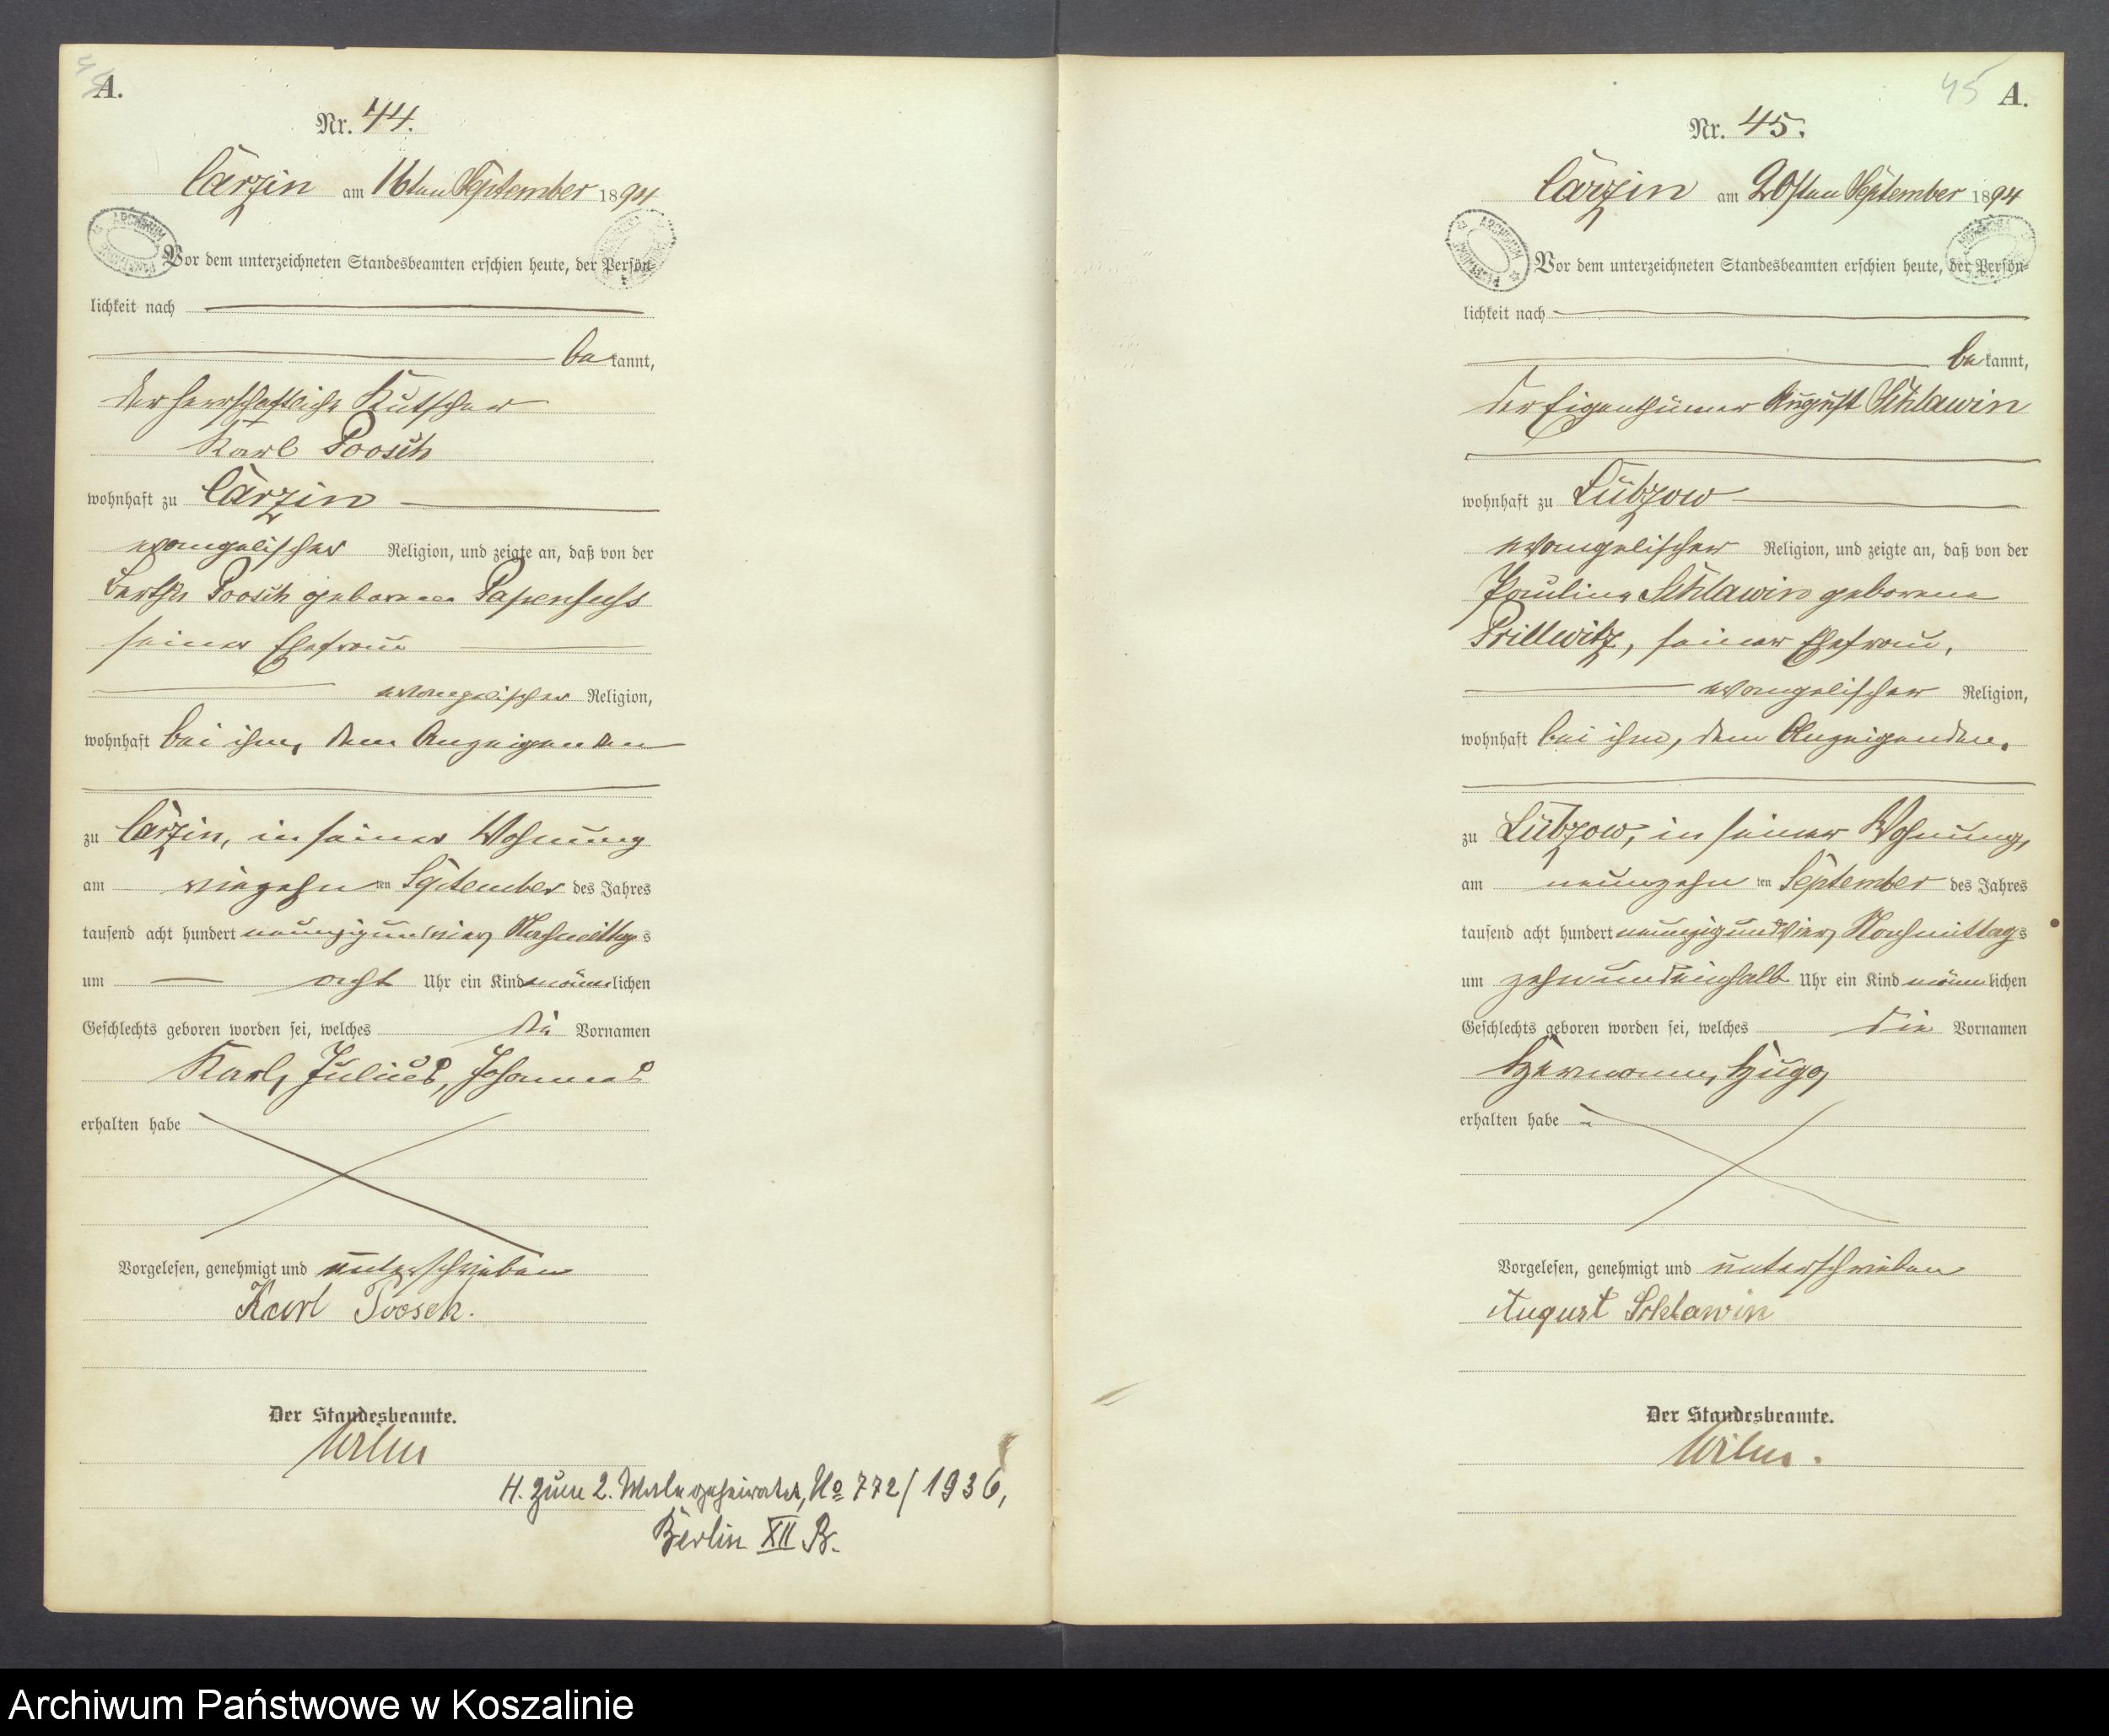 A.
Nr. 44.
Carzin am 16ten September 1894
Vor dem unterzeichneten Standesbeamten erschien heute, der Persön-
lichkeit nach
bekannt,
der herrschaftliche Kutscher
Karl Poosch
wohnhaft zu Carzin
evangelischer Religion, und zeigte an, daß von der
Bertha Poosch geborenen Papenfuss
seiner Ehefrau
evangelischer Religion,
wohnhaft bei ihm, dem Anzeigenden
zu Carzin, in seiner Wohnung
am vierzehnten September des Jahres
tausend acht hundert neunzigundvier, Nachmittags
um acht Uhr ein Kind männlichen
Geschlechts geboren worden sei, welches die Vornamen
Karl, Julius, Johannes
erhalten habe
Vorgelesen, genehmigt und unterschrieben
Karl Poosch.
Der Standesbeamte.
Wilm
H. zum 2. Male geheiratet, No 772/1936,
Berlin XII B.
45 A.
Nr. 45.
Carzin am 20sten September 1894
Vor dem unterzeichneten Standesbeamten erschien heute, der Persön-
lichkeit nach
bekannt,
der Eigenthümer August Schlawin
wohnhaft zu Lübzow
evangelischer Religion, und zeigte an, daß von der
Pauline Schlawin geborene
Prillwitz, seiner Ehefrau,
evangelischer Religion,
wohnhaft bei ihm, dem Anzeigenden,
zu Lübzow, in seiner Wohnung,
am neunzehnten September des Jahres
tausend acht hundert neunzigundvier, Nachmittags
um zehnundeinhalb Uhr ein Kind männlichen
Geschlechts geboren worden sei, welches die Vornamen
Hermann, Hugo,
erhalten habe
Vorgelesen, genehmigt und unterschrieben
August Schlawin
Der Standesbeamte.
Wilm.
Archiwum Państwowe w Koszalinie